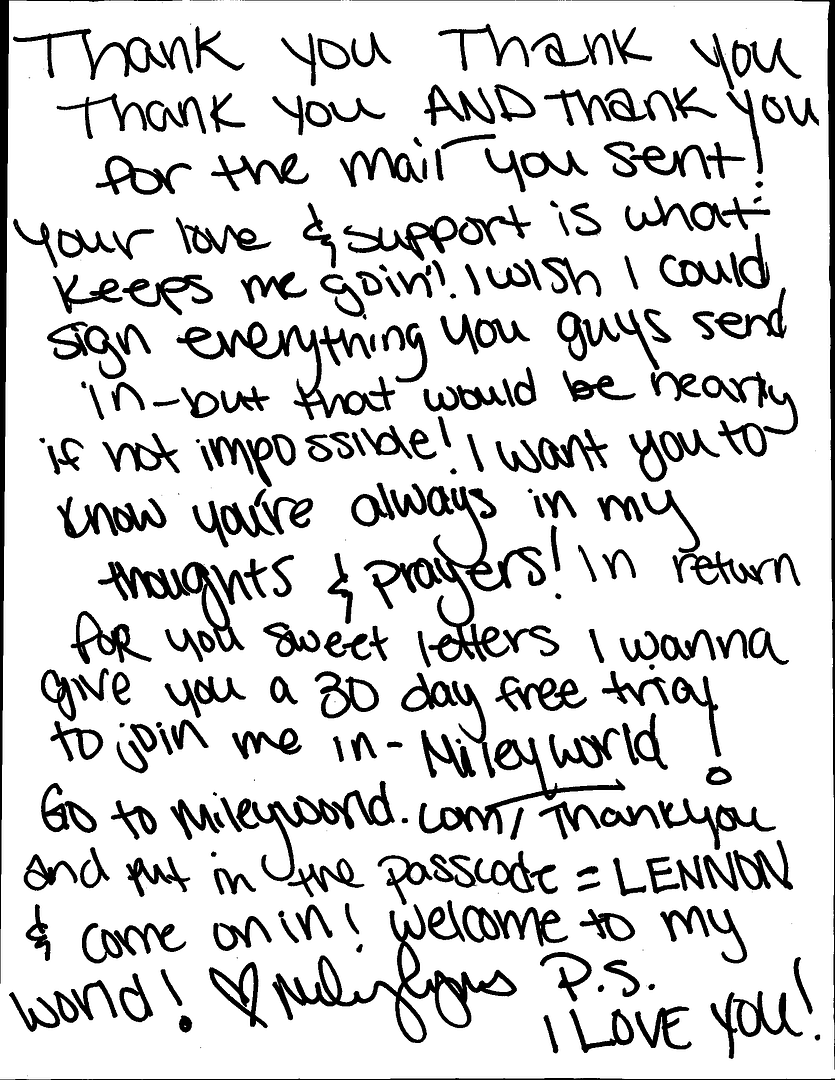 Thank you Thank you
Thank you AND Thank you
for the mail you sent!
Your love & support is what
keeps me goin'! I wish I could
sign everything you guys send
in - but that would be nearly
if not impossible! I want you to
know you're always in my
thoughts & prayers! In return
for you sweet letters I wanna
give you a 30 day free trial
to join me in - Mileyworld!
Go to mileyworld.com/Thankyou
and put in the passcode = LENNON
& come on in! Welcome to my
world! ♡ Miley Cyrus P.S.
I LOVE YOU!